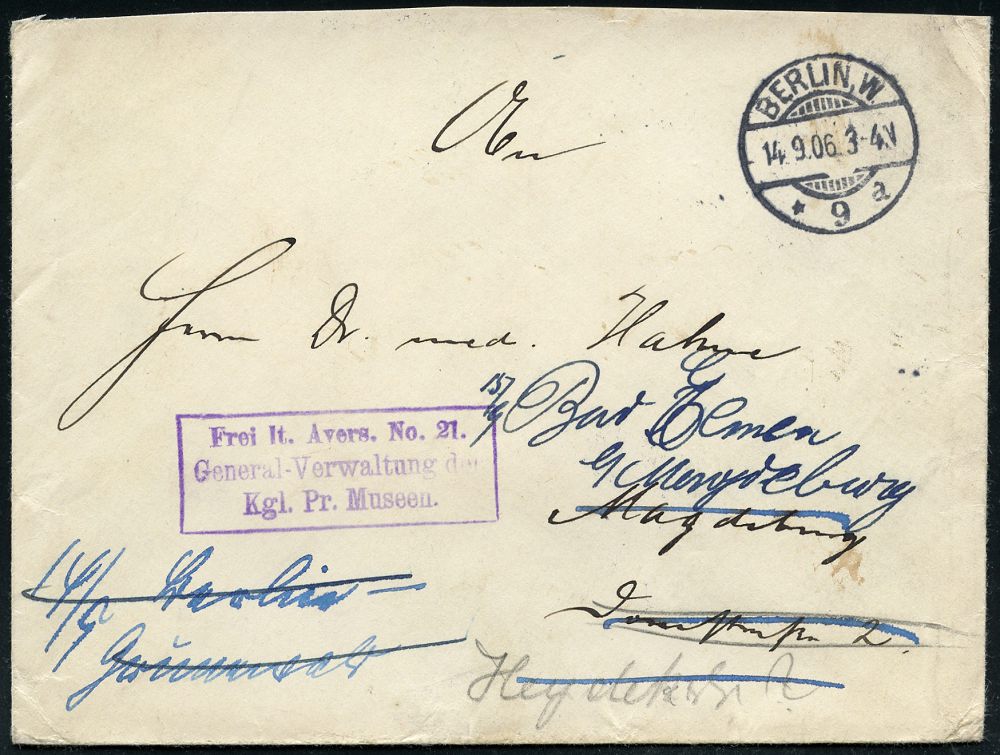 An
BERLIN, W
14.9.06. 3-4.V
* 9 a
Herrn Dr. med. Hahne
15/9 Bad Elmen
b/ Magdeburg
Magdeburg
Frei lt. Avers. No. 21.
General-Verwaltung der
Kgl. Pr. Museen.
14/9 Berlin-
Grunewald
2.